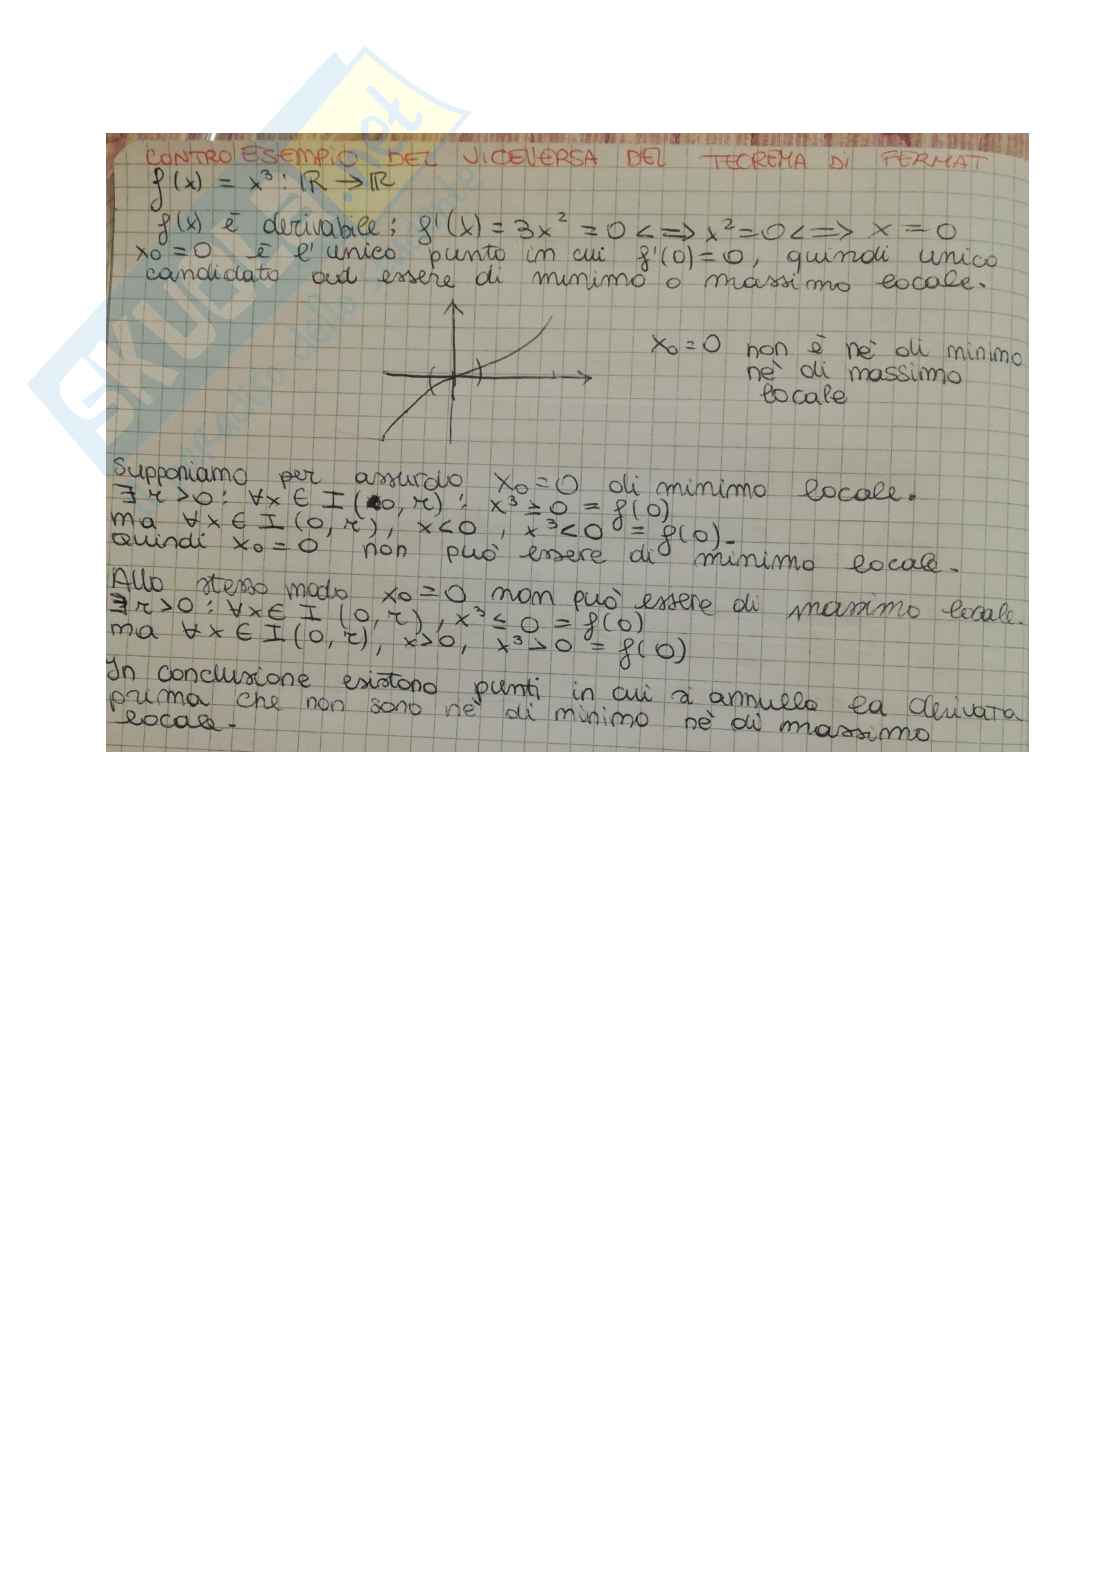 CONTROESEMPIO DEL VICEVERSA DEL TEOREMA DI FERMAT
f(x) = x³ : ℝ → ℝ
f(x) è derivabile; f'(x) = 3x² = 0 <=> x² = 0 <=> x = 0
x₀ = 0 è l'unico punto in cui f'(0) = 0, quindi unico
candidato ad essere di minimo o massimo locale.
x₀ = 0 non è nè di minimo
nè di massimo
locale
Supponiamo per assurdo x₀ = 0 di minimo locale.
∃ r > 0 : ∀x ∈ I(0, r) : x³ ≥ 0 = f(0)
ma ∀x ∈ I(0, r), x < 0, x³ < 0 = f(0).
Quindi x₀ = 0 non può essere di minimo locale.
Allo stesso modo x₀ = 0 non può essere di massimo locale.
∃ r > 0 : ∀x ∈ I(0, r), x³ ≤ 0 = f(0)
ma ∀x ∈ I(0, r), x > 0, x³ > 0 = f(0)
In conclusione esistono punti in cui si annulla la derivata
prima che non sono nè di minimo nè di massimo
locale.
SKUOLA.net